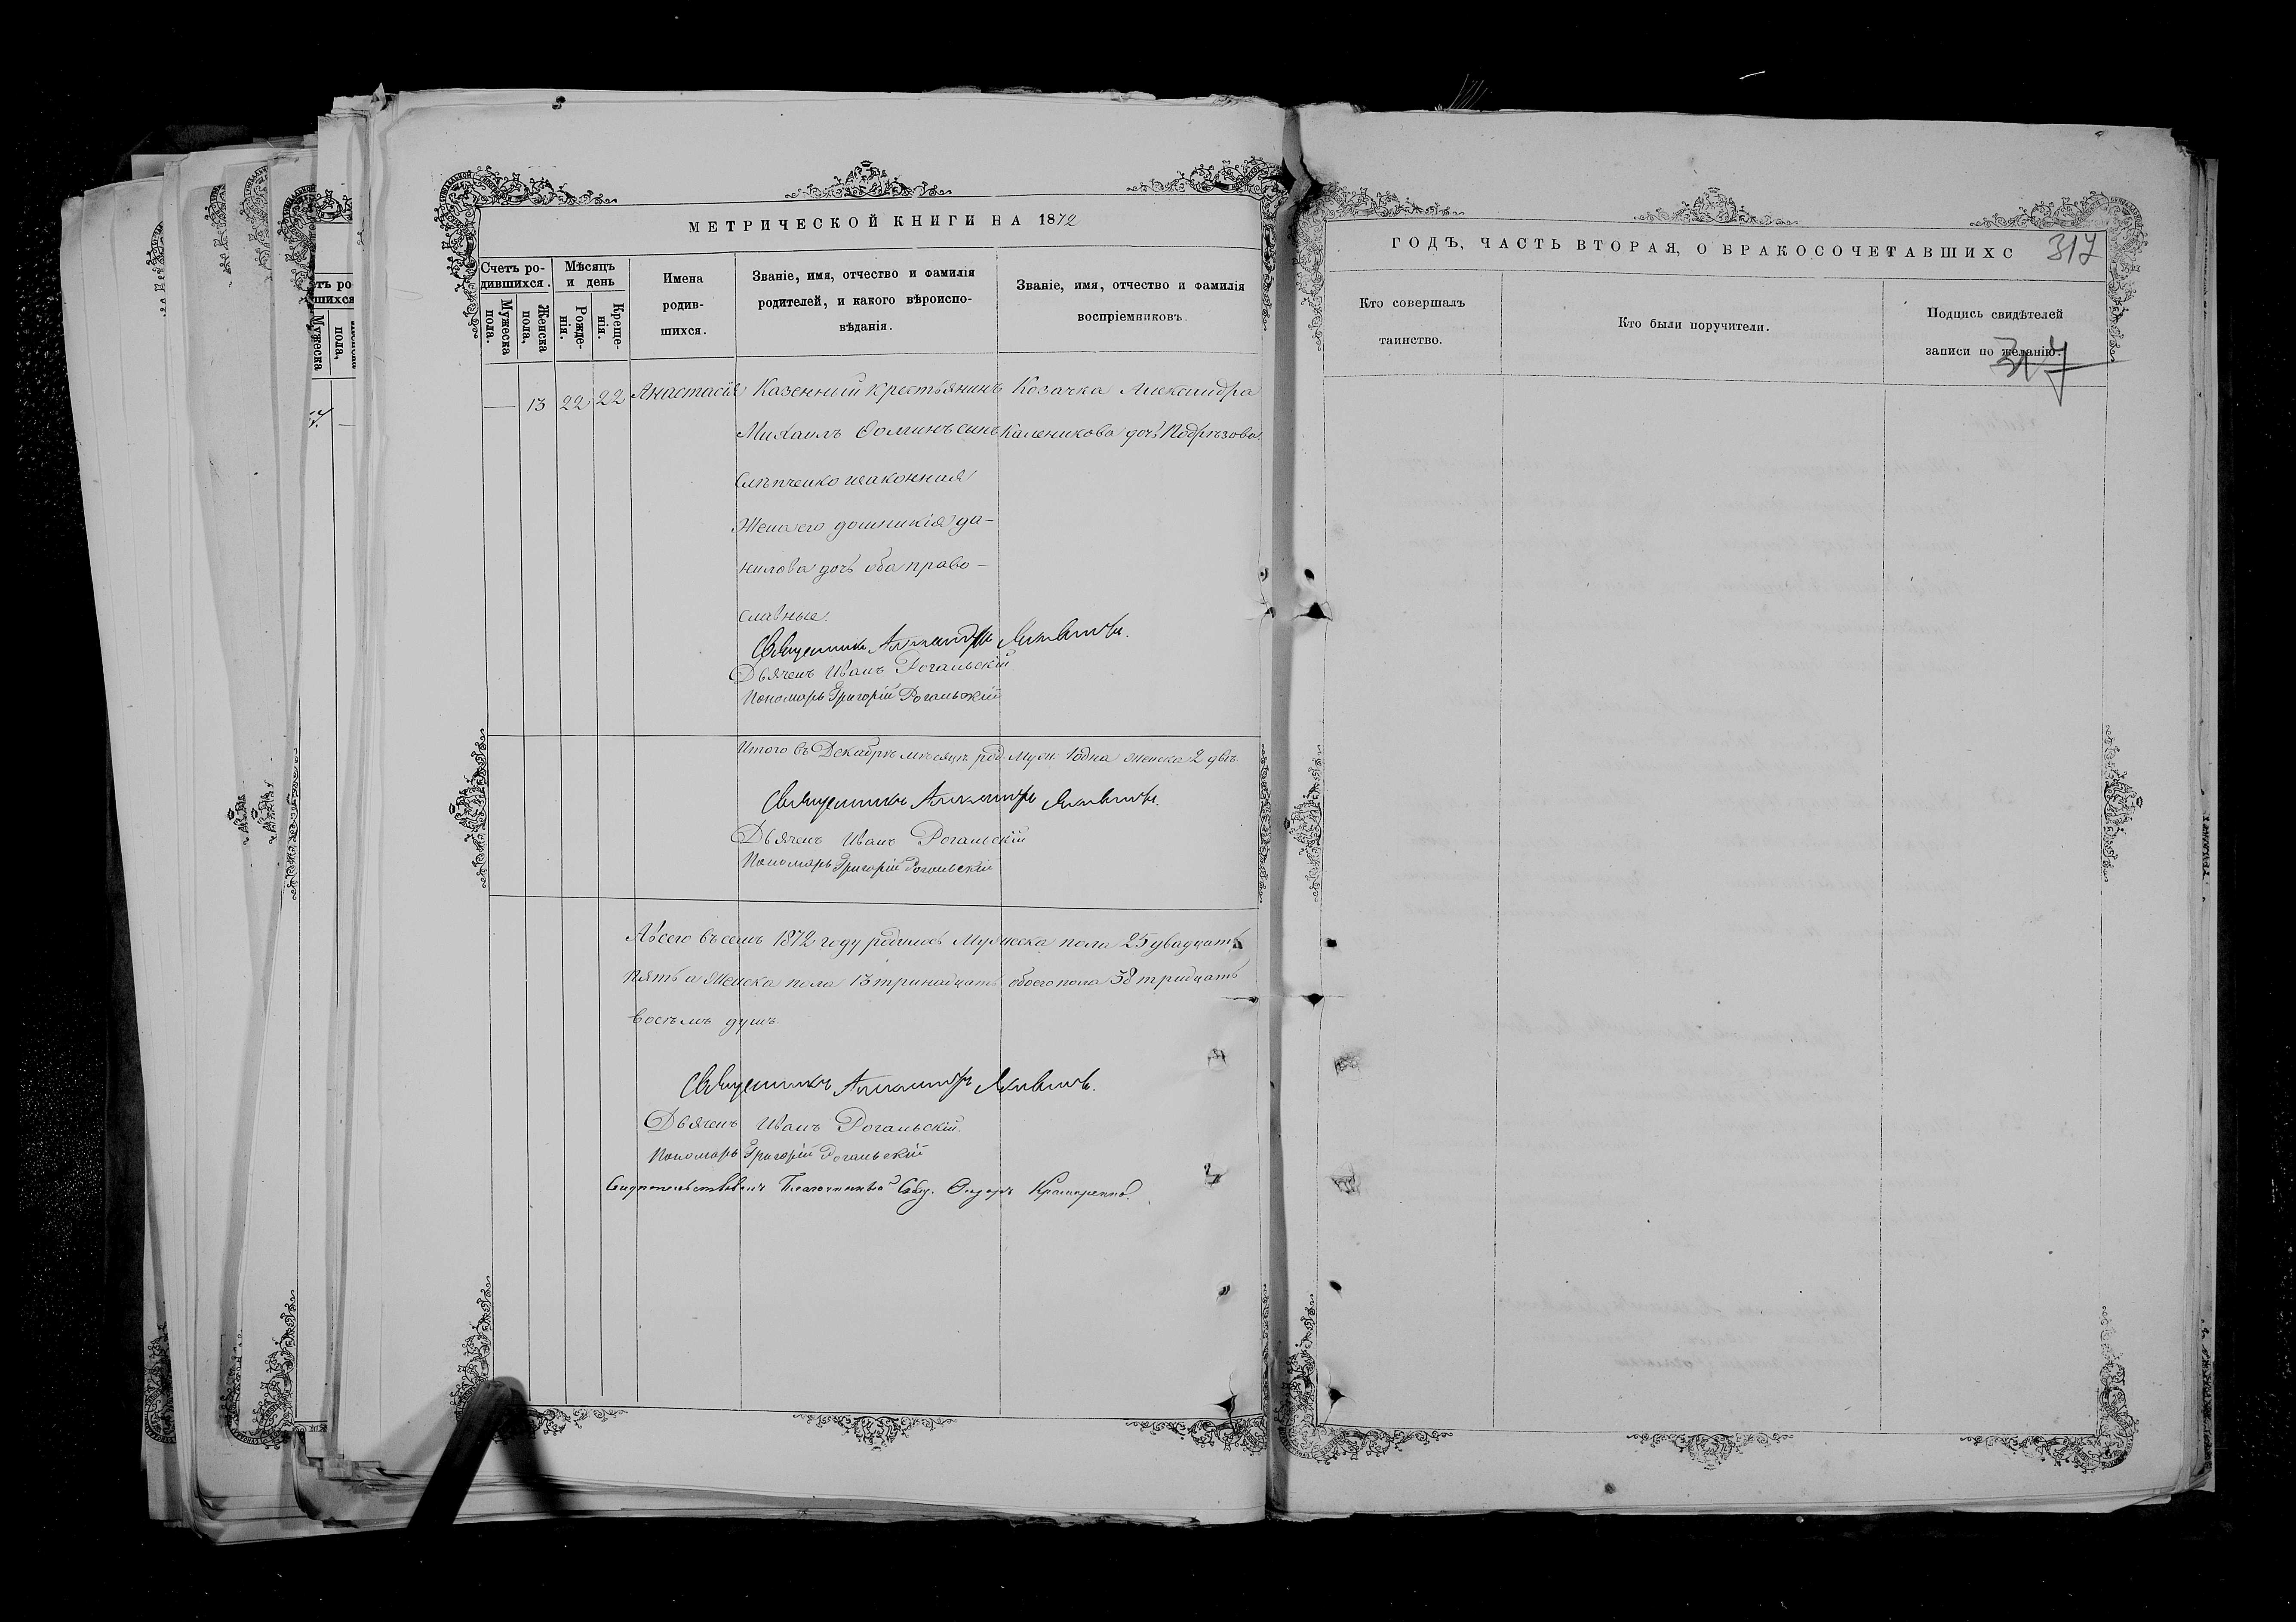 МЕТРИЧЕСКОЙ КНИГИ НА 1872
Счетъ ро-
дившихся.
Мужеска пола.
Женска пола,
Мѣсяцъ
и день
Рожде-
нія.
Креще-
нія.
Имена
родив-
шихся.
Званіе, имя, отчество и фамилія
родителей, и какого вѣроиспо-
вѣданія.
Званіе, имя, отчество и фамилія
воспріемниковъ.
— 13 22 22 Анастасія Казенный крестьянинъ Козачка Александра
Михаилъ Фоминъ сынъ Каленикова дочь Подрѣзова
Слѣпченко изаконная
Жена его домникія да-
нилова дочь оба право-
славные.
Священникъ Александръ
Дьячекъ Иванъ Рогальскій
Пономарь Григорій Рогальскій
Итого въ Декабрѣ мѣсяцѣ род. муж. 1 одна женска 2 двѣ
Священникъ Александръ
Дьячекъ Иванъ Рогальскій
Пономарь Григорій Рогальскій
Авсего въ семъ 1872 году родилось Мужеска пола 25 двадцать
пять а Женска пола 13 тринадцать обоего пола 38 тридцать
восемъ душъ.
Священникъ Александръ
Дьячекъ Иванъ Рогальскій.
Пономарь Григорій Рогальскій
Свидетельствовалъ Благочинный Свящ.
ГОДЪ, ЧАСТЬ ВТОРАЯ, О БРАКОСОЧЕТАВШИХС
317
Кто совершалъ
таинство.
Кто были поручители.
Подпись свидѣтелей
записи по желанію.
317